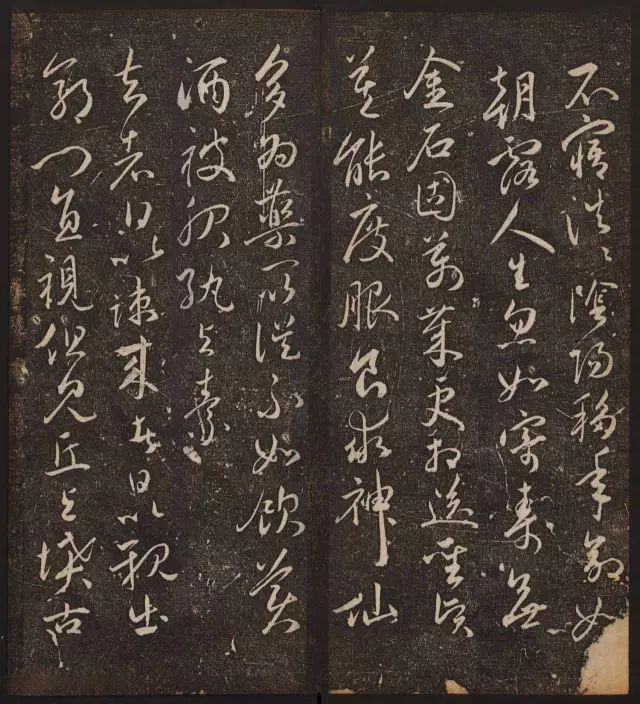 不寤浩〻陰陽移年命如
朝露人生忽如寄壽無
金石固萬歲更相送聖賢
莫能度服食求神仙
多為藥所誤不如飲美
酒被服紈與素
去者日以疎来者日以親出
郭門直視但見丘與墳古